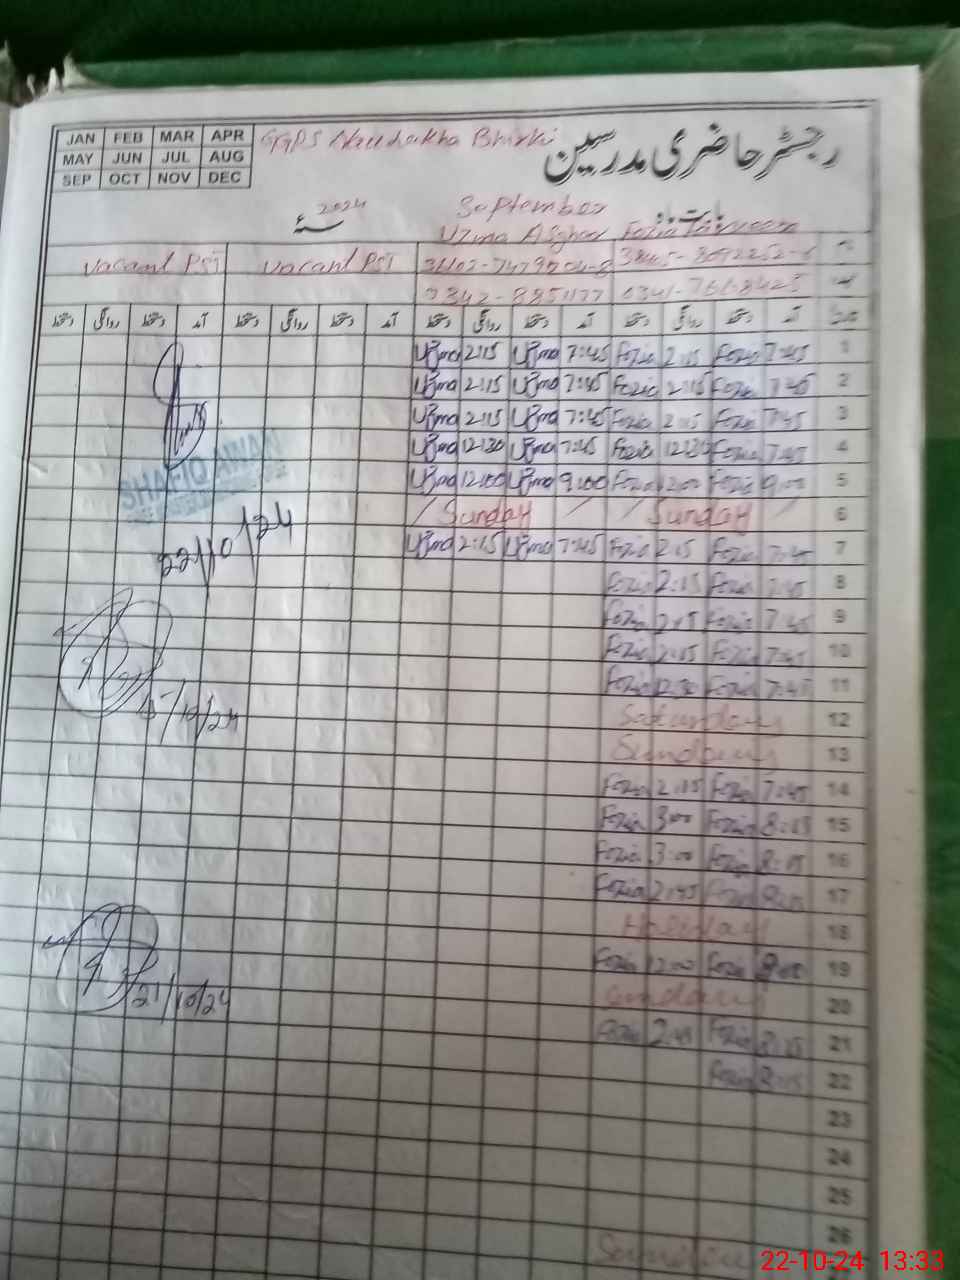 JAN FEB MAR APR
MAY JUN JUL AUG
SEP OCT NOV DEC
GGPS Naulakha Bhirki
رجسٹر حاضری مدرسین
2024 سنۂ
September
بابت ماہ
Uzma Asghar Fozia
Vacant PST Vacant PST
0342-8851177
آمد دستخط روانگی دستخط آمد دستخط روانگی دستخط آمد دستخط روانگی دستخط آمد دستخط روانگی دستخط
Uzma 2:15 Uzma 7:45 Fozia 2:15 Fozia 7:45 1
Uzma 2:15 Uzma 7:45 Fozia 2:15 Fozia 7:45 2
Uzma 2:15 Uzma 7:45 Fozia 2:15 Fozia 7:45 3
Uzma 12:30 Uzma 7:45 Fozia 12:30 Fozia 7:45 4
Uzma 12:00 Uzma 9:00 Fozia 12:00 Fozia 9:00 5
SHAFIQ AWAN
Sunday Sunday 6
22/10/24
Uzma 2:15 Uzma 7:45 Fozia 2:15 Fozia 7:45 7
Fozia 2:15 Fozia 7:45 8
Fozia 2:15 Fozia 7:45 9
Fozia 2:15 Fozia 7:45 10
Fozia 12:30 Fozia 7:45 11
15/10/24
Saturday 12
Sunday 13
Fozia 2:15 Fozia 7:45 14
Fozia 3:00 Fozia 8:15 15
Fozia 3:00 Fozia 8:15 16
Fozia 2:45 Fozia 17
Holiday 18
Fozia 12:00 Fozia 9:00 19
21/10/24
Sunday 20
Fozia 2:45 Fozia 8:15 21
Fozia 8:15 22
23
24
25
26
22-10-24 13:33